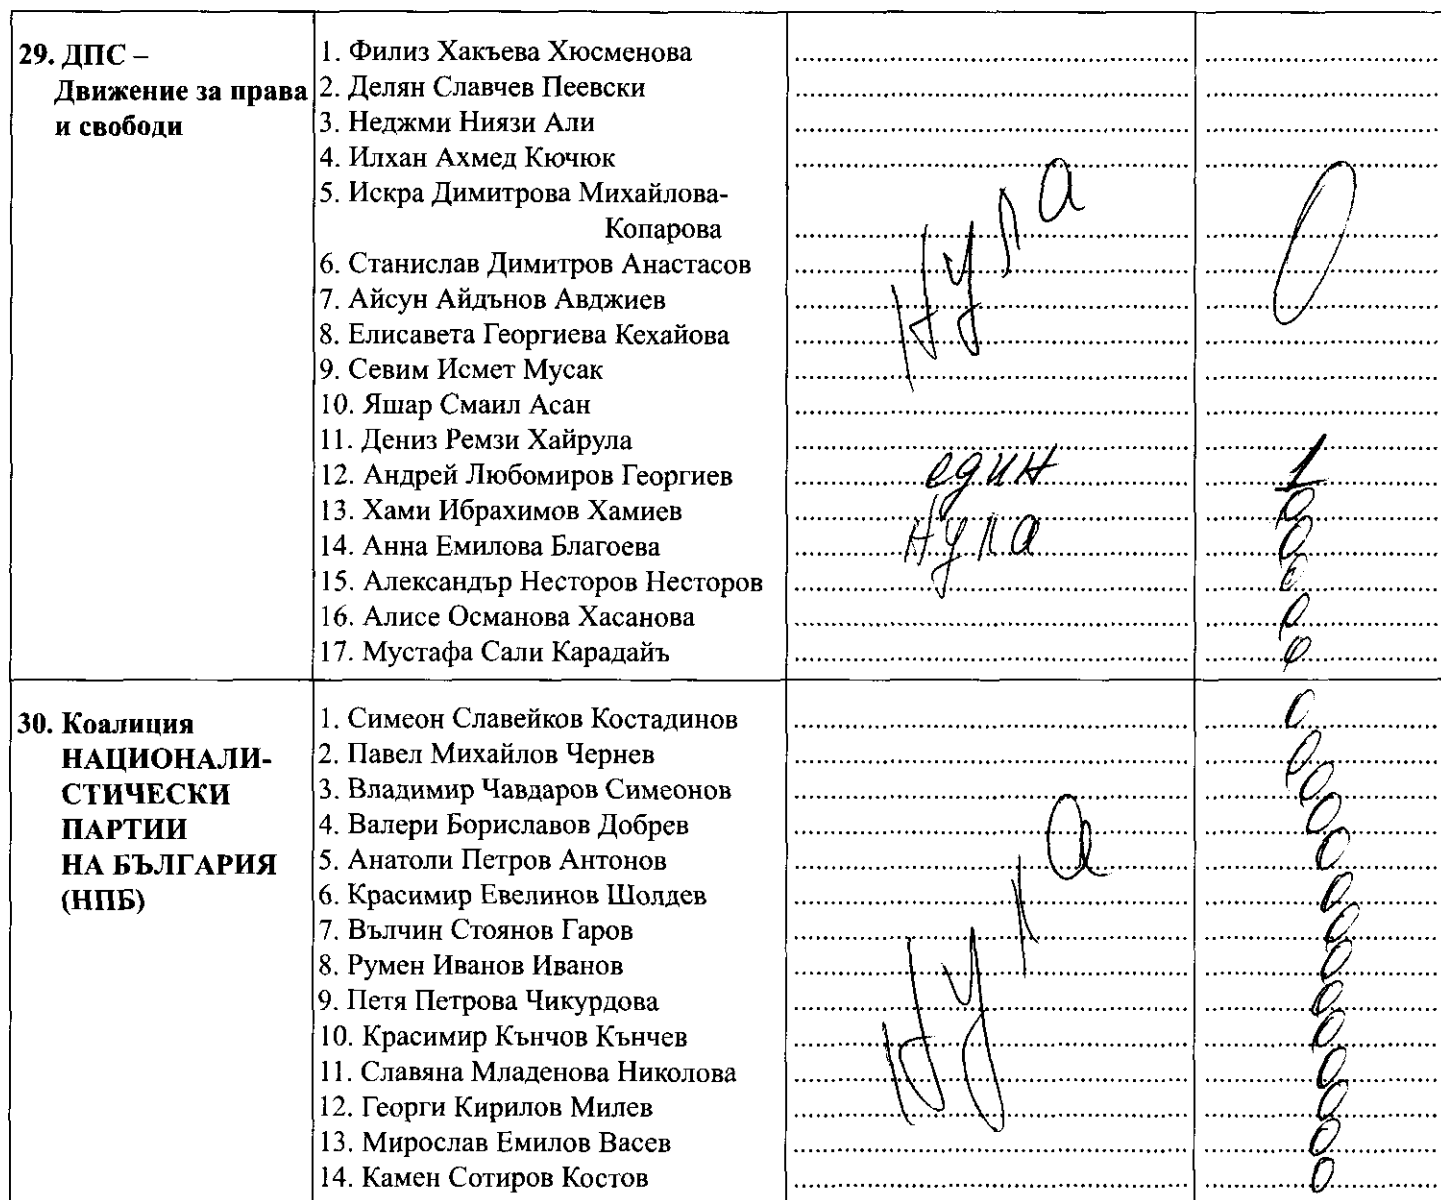 29. ДПС –
Движение за права
и свободи
1. Филиз Хакъева Хюсменова
2. Делян Славчев Пеевски
3. Неджми Ниязи Али
4. Илхан Ахмед Кючюк
5. Искра Димитрова Михайлова-
Копарова
6. Станислав Димитров Анастасов
7. Айсун Айдънов Авджиев
8. Елисавета Георгиева Кехайова
9. Севим Исмет Мусак
10. Яшар Смаил Асан
11. Дениз Ремзи Хайрула
нула 0
12. Андрей Любомиров Георгиев един 1
13. Хами Ибрахимов Хамиев 0
14. Анна Емилова Благоева нула 0
15. Александър Несторов Несторов 0
16. Алисе Османова Хасанова 0
17. Мустафа Сали Карадайъ 0
30. Коалиция
НАЦИОНАЛИ-
СТИЧЕСКИ
ПАРТИИ
НА БЪЛГАРИЯ
(НПБ)
1. Симеон Славейков Костадинов 0
2. Павел Михайлов Чернев 0
3. Владимир Чавдаров Симеонов 0
4. Валери Бориславов Добрев 0
5. Анатоли Петров Антонов 0
6. Красимир Евелинов Шолдев 0
7. Вълчин Стоянов Гаров 0
8. Румен Иванов Иванов 0
9. Петя Петрова Чикурдова 0
10. Красимир Кънчов Кънчев 0
11. Славяна Младенова Николова 0
12. Георги Кирилов Милев 0
13. Мирослав Емилов Васев 0
14. Камен Сотиров Костов 0
нула